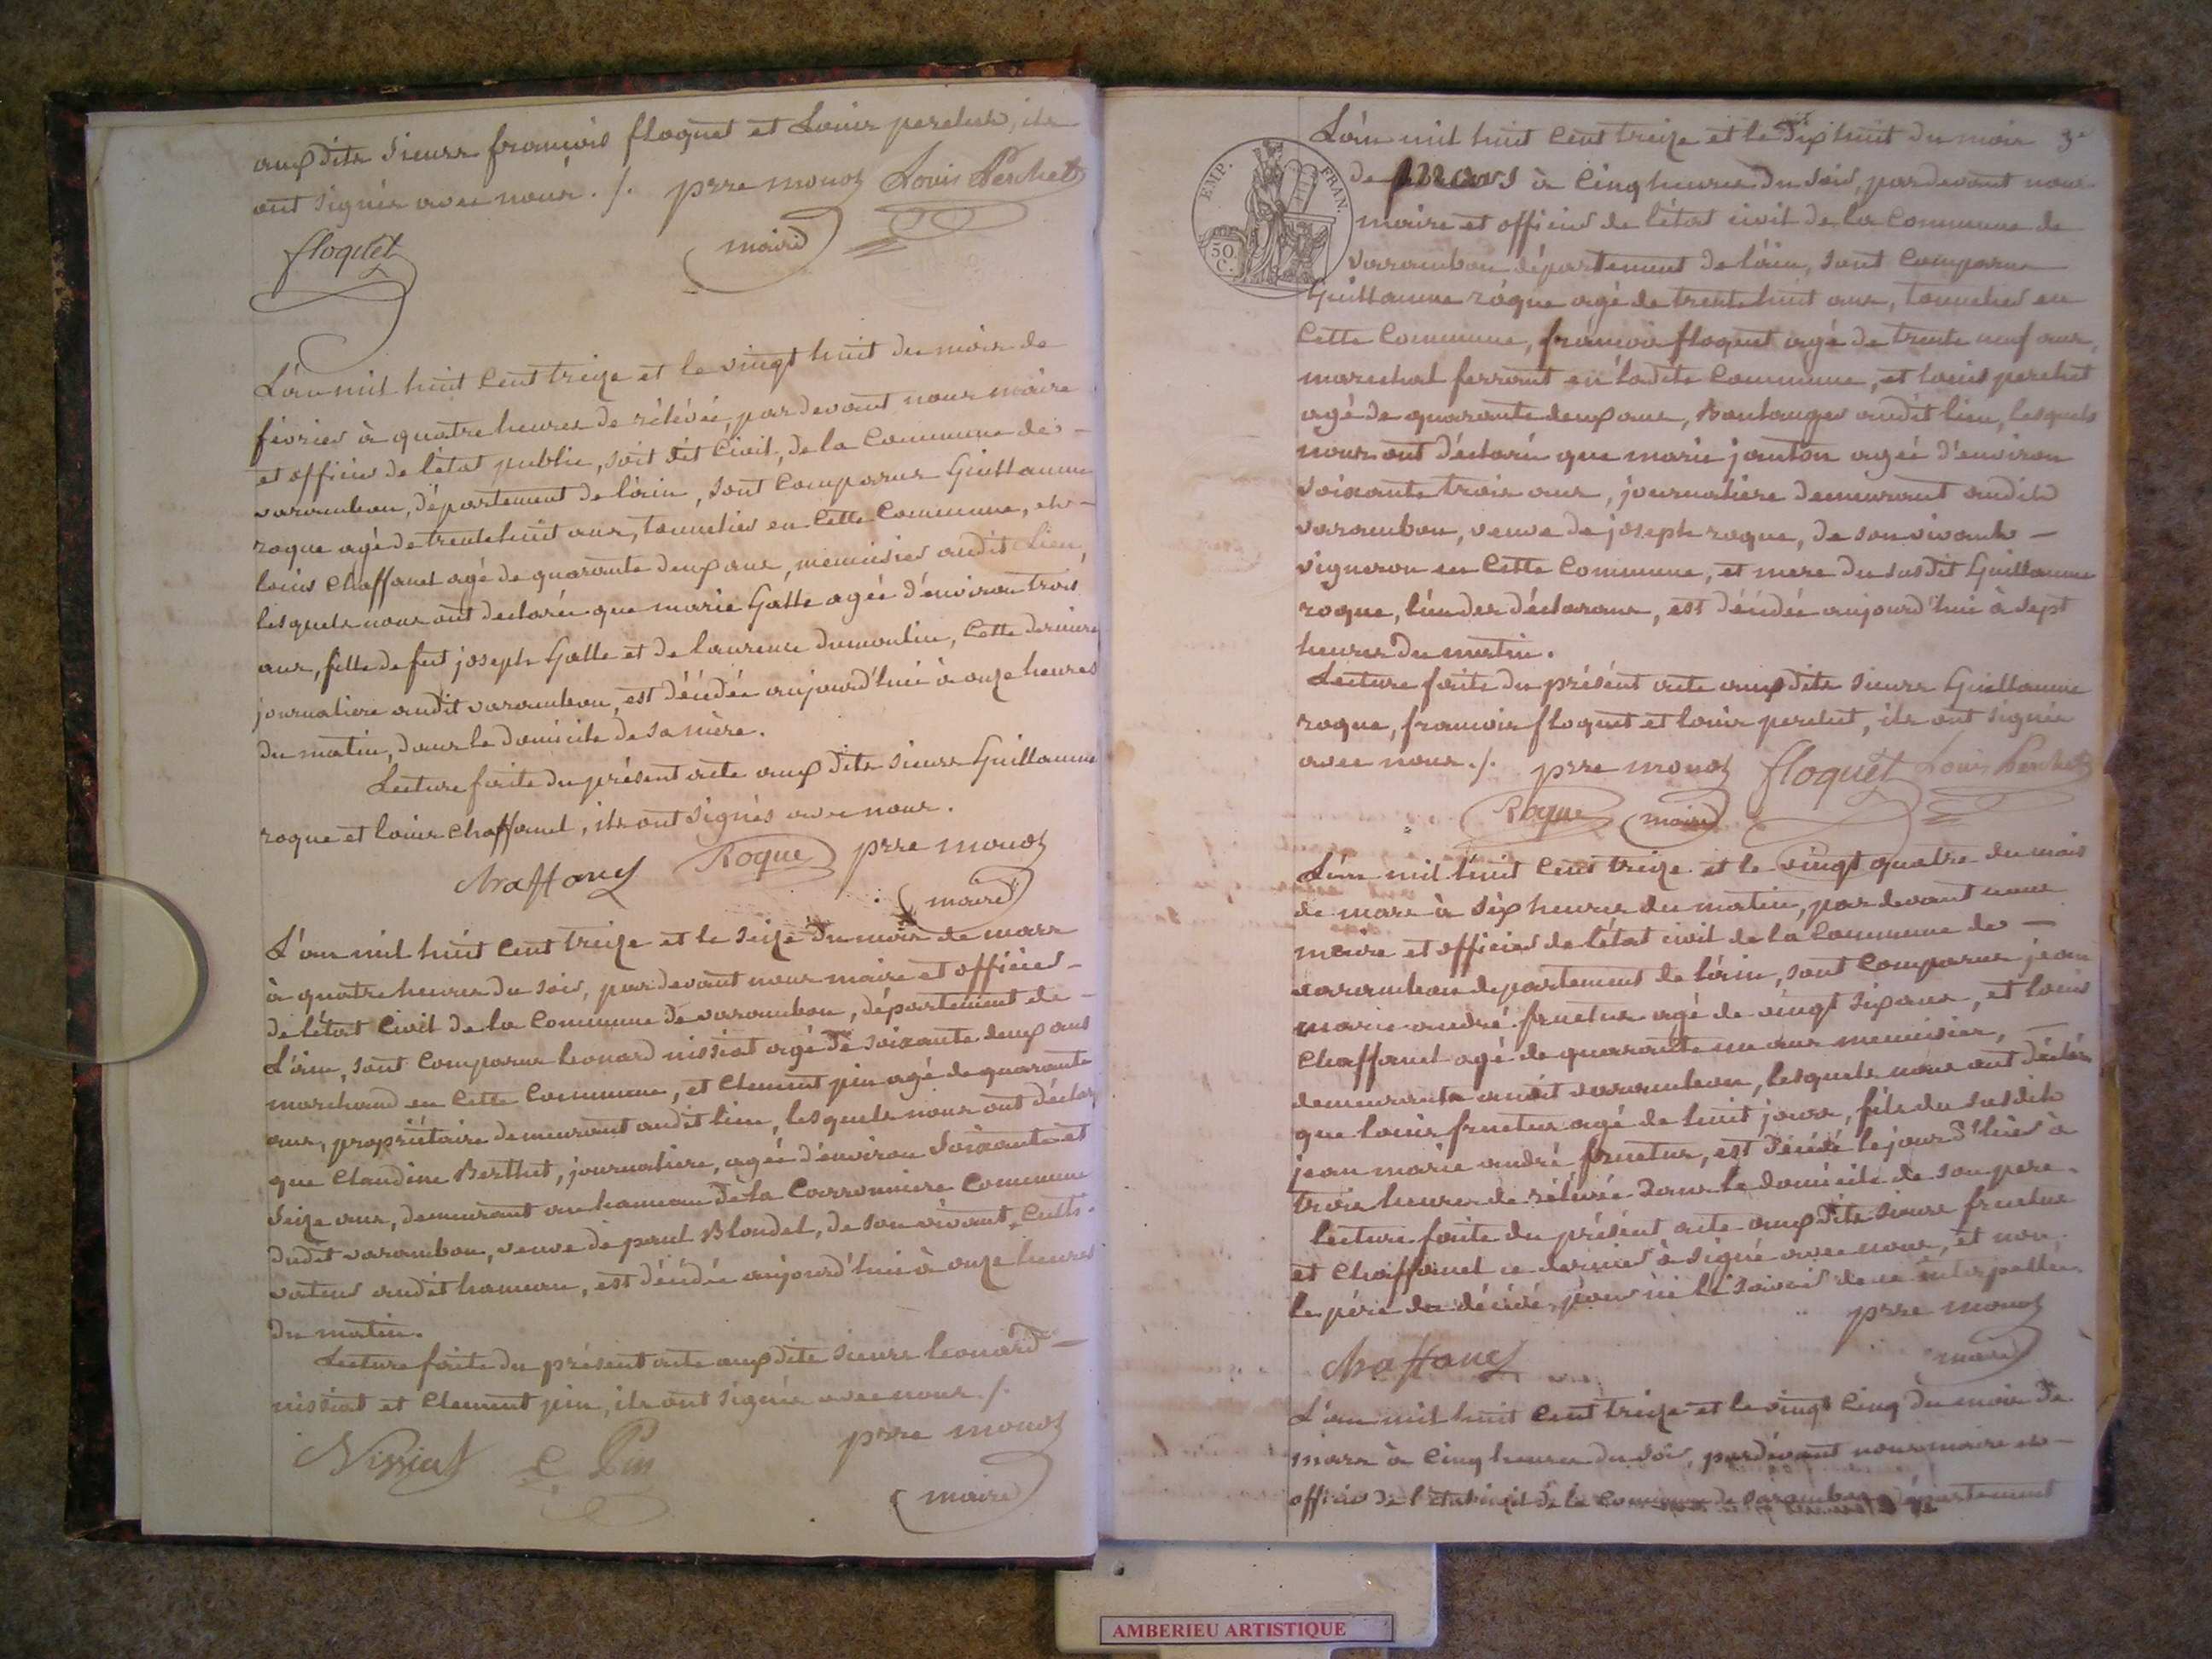 auxdits sieurs françois floquet et Louis perchet, ils
ont signés avec nous ./. prre monoz Louis Perchet
floquet maire
L'an mil huit Cent treize et le vingt huit du mois de
février à quatre heures de rélévée, pardevant nous maire
et officier de l'état public, soit dit Civil, de la Commune de
varambon, département de l'ain, sont Comparus Guillaume
roque agé de trente huit ans, tonnelier en Cette Commune, et
louis Chaffanel agé de quarante deux ans, menuisier audit lieu,
lesquels nous ont declarés que marie Galle agée d'environ trois
ans, fille de feu joseph Galle et de laurence dumoulin, Cette derniere
journaliere audit varambon, est décédée aujourd'hui à onze heures
du matin, dans le domicile de sa mère.
Lecture faite du présent acte auxdits sieurs Guillaume
roque et louis Chaffanel, ils ont signés avec nous.
Chaffanel Roque prre monoz
maire
L'an mil huit Cent treize et le seize du mois de mars
à quatre heures du soir, pardevant nous maire et officier
de l'état Civil de la Commune de varambon, département de
L'ain, sont Comparus leonard nissiat agé de soixante deux ans
marchand en Cette Commune, et Clement pin agé de quarante
ans, propriétaire demeurant audit lieu, lesquels nous ont déclaré
que Claudine Berthet, journaliere, agée d'environ Soixante et
Seize ans, demeurant au hameau de la Carronniere Commune
dudit varambon, veuve de paul Blondel, de son vivant, Culti-
vateur audit hameau, est décédée aujourd'hui à onze heures
du matin.
Lecture faite du présent acte auxdits sieurs leonard
nissiat et Clement pin, ils ont signés avec nous ./.
Nissiat C Pin prre monoz
maire
3e
L'an mil huit Cent treize et le dix huit du mois
de mars à Cinq heures du soir, pardevant nous
maire et officier de l'état civil de la Commune de
varambon département de l'ain, sont Comparus
Guillaume roque agé de trente huit ans, tonnelier en
Cette Commune, françois floquet agé de trente neuf ans,
marechal ferrant en ladite Commune, et louis perchet
agé de quarante deux ans, Boulanger audit lieu, lesquels
nous ont déclarés que marie janton agée d'environ
soixante trois ans, journaliere demeurant audit
varambon, veuve de joseph roque, de son vivant
vigneron en Cette Commune, et mere du susdit Guillaume
roque, l'un des déclarans, est décédée aujourd'hui à sept
heures du matin.
Lecture faite du présent acte auxdits sieurs Guillaume
roque, françois floquet et louis perchet, ils ont signés
avec nous ./. prre monoz floquet Louis Perchet
Roque maire
L'an mil huit Cent treize et le vingt quatre du mois
de mars à six heures du matin, pardevant nous
maire et officier de l'état civil de la Commune de
varambon departement de l'ain, sont Comparus jean
marie andré fructus agé de vingt six ans, et louis
Chaffanel agé de quarante un ans menuisier,
demeurants audit varambon, lesquels nous ont déclaré
que louis fructus agé de huit jours, fils du susdit
jean marie andré fructus, est décédé le jour d'hier à
trois heures de rélévée dans le domicile de son pere.
Lecture faite du présent acte auxdits sieurs fructus
et Chaffanel ce dernier à signé avec nous, et non
le pére du décédé, pour ne le savoir de ce interpellé.
prre monoz
Chaffanel maire
L'an mil huit Cent treize et le vingt Cinq du mois de
mars à Cinq heures du soir, pardevant nous maire et
officier de l'état civil de la Commune de varambon département
EMP. FRAN.
50 C.
AMBERIEU ARTISTIQUE